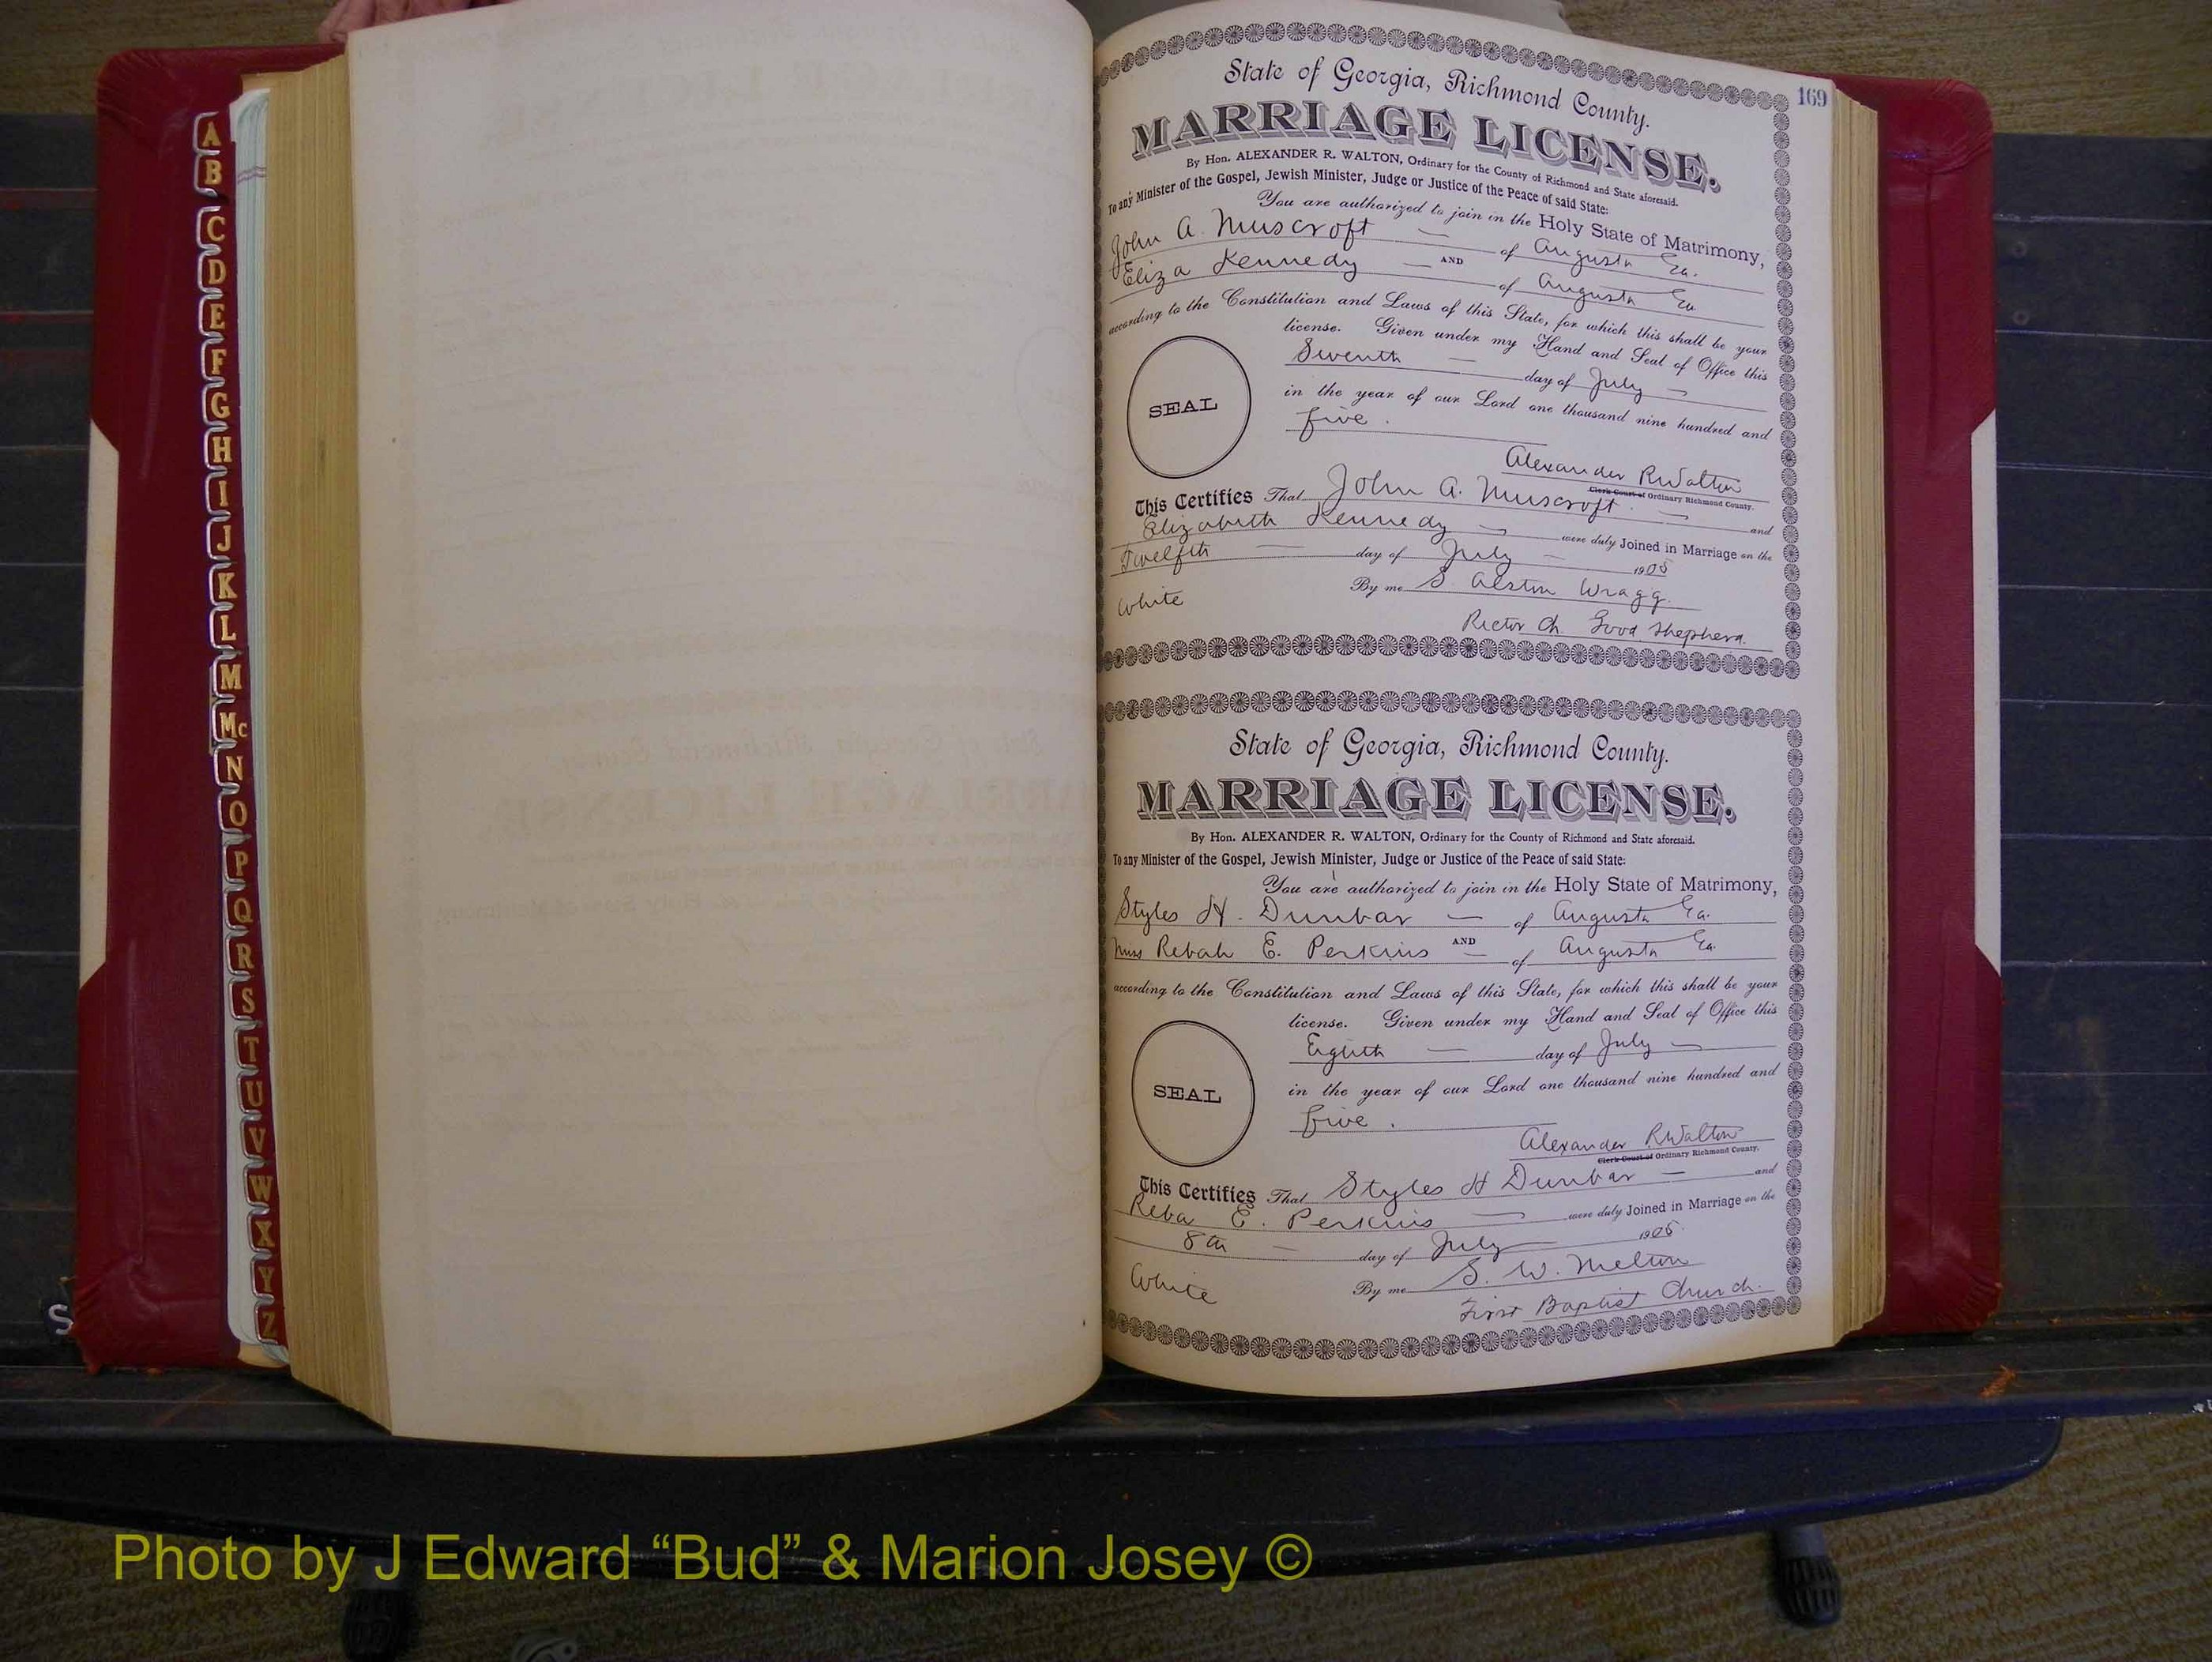 A
B
C
D
E
F
G
H
I
J
K
L
M
Mc
N
O
P
Q
R
S
T
U
V
W
X
Y
Z
S
169
State of Georgia, Richmond County.
MARRIAGE LICENSE.
By Hon. ALEXANDER R. WALTON, Ordinary for the County of Richmond and State aforesaid.
To any Minister of the Gospel, Jewish Minister, Judge or Justice of the Peace of said State:
You are authorized to join in the Holy State of Matrimony,
John A. Muscroft — of Augusta Ga.
AND
Eliza Kennedy — of Augusta Ga
according to the Constitution and Laws of this State, for which this shall be your
license. Given under my Hand and Seal of Office this
Seventh — day of July —
in the year of our Lord one thousand nine hundred and
five.
SEAL
Alexander R Walton
Clerk Court of Ordinary Richmond County.
This Certifies That John A. Muscroft — and
Elizabeth Kennedy — were duly Joined in Marriage on the
Twelfth — day of July — 1905
White By me S. Alston Wragg.
Rector Ch. Good Shepherd.
State of Georgia, Richmond County.
MARRIAGE LICENSE.
By Hon. ALEXANDER R. WALTON, Ordinary for the County of Richmond and State aforesaid.
To any Minister of the Gospel, Jewish Minister, Judge or Justice of the Peace of said State:
You are authorized to join in the Holy State of Matrimony,
Styles H. Dunbar — of Augusta Ga.
AND
Miss Rebah E. Perkins — of Augusta Ga.
according to the Constitution and Laws of this State, for which this shall be your
license. Given under my Hand and Seal of Office this
Eighth — day of July —
in the year of our Lord one thousand nine hundred and
five.
SEAL
Alexander R Walton
Clerk Court of Ordinary Richmond County.
This Certifies That Styles H Dunbar — and
Reba E. Perkins — were duly Joined in Marriage on the
8th — day of July 1905
White By me S. W. Melton
First Baptist Church.
Photo by J Edward “Bud” & Marion Josey ©